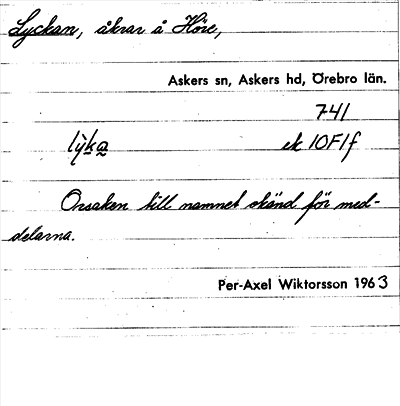 Lyckan, åkrar å Höre,
Askers sn, Askers hd, Örebro län.
741
lỳka ek 10F1f
Orsaken till namnet okänd för med-
delarna.
Per-Axel Wiktorsson 1963